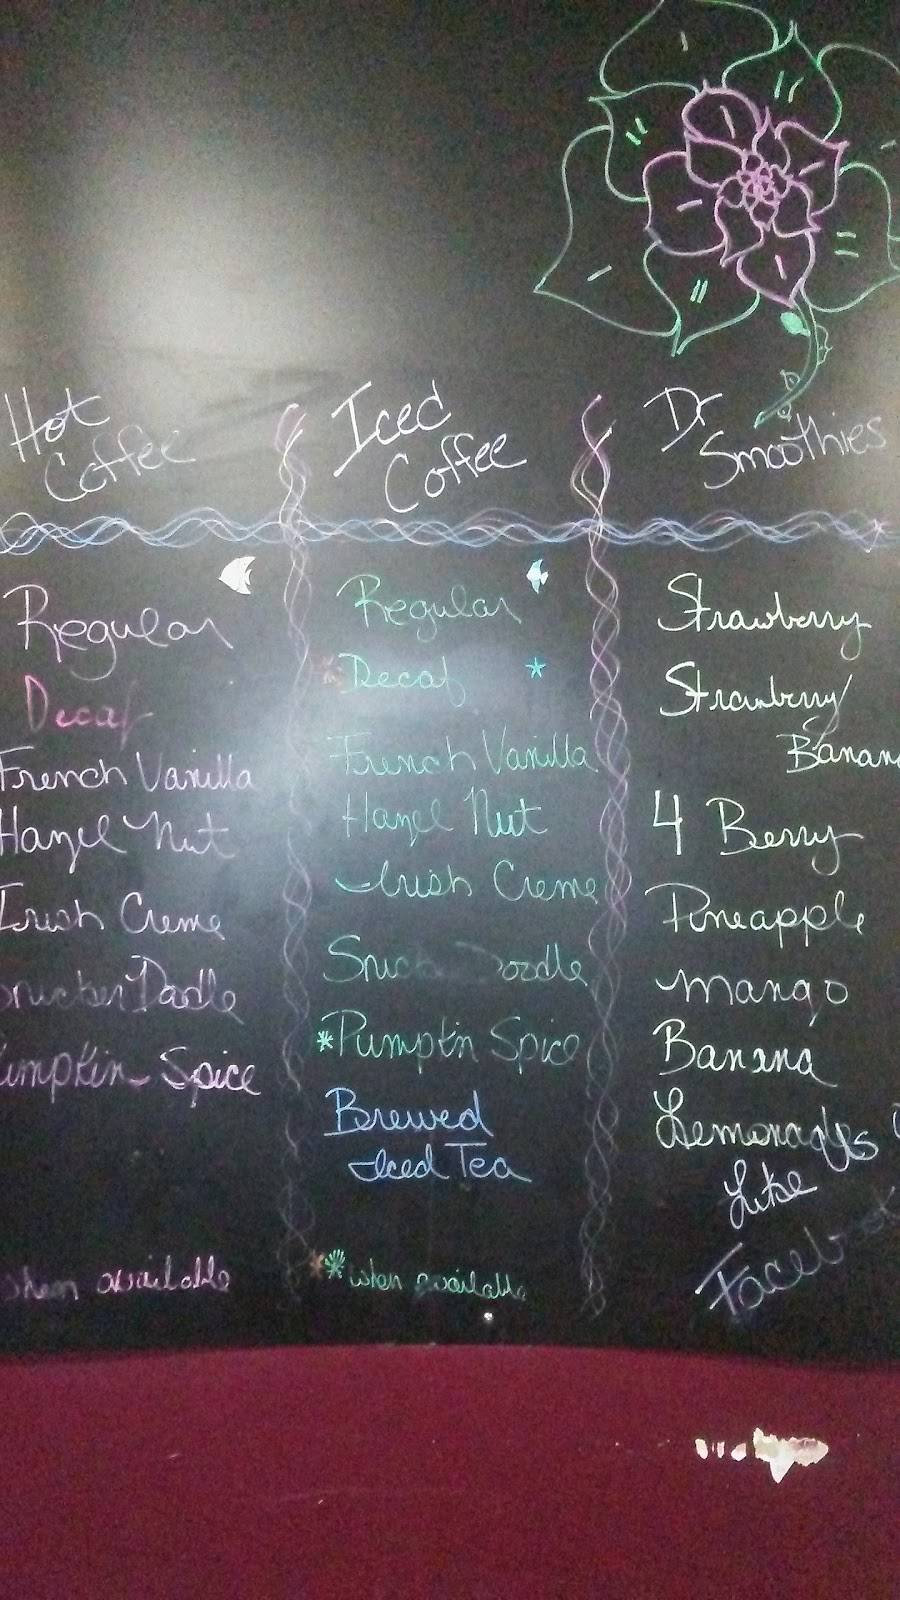 Hot
Coffee
Regular
Decaf
French Vanilla
Hazel Nut
Irish Creme
Snicker Dadle
Pumpkin Spice
when available
Iced
Coffee
Regular
* Decaf *
French Vanilla
Hazel Nut
Irish Creme
Doodle
* Pumpkin Spice
Brewed
Iced Tea
** when available
Dr
Smoothies
Strawberry
Strawberry/
Banana
4 Berry
Pineapple
Mango
Banana
Lemonades
Like
Facebook